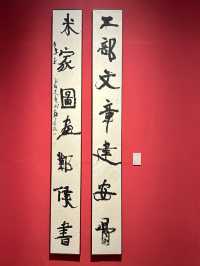 工部文章建安骨
米家圖畫鄴侯書